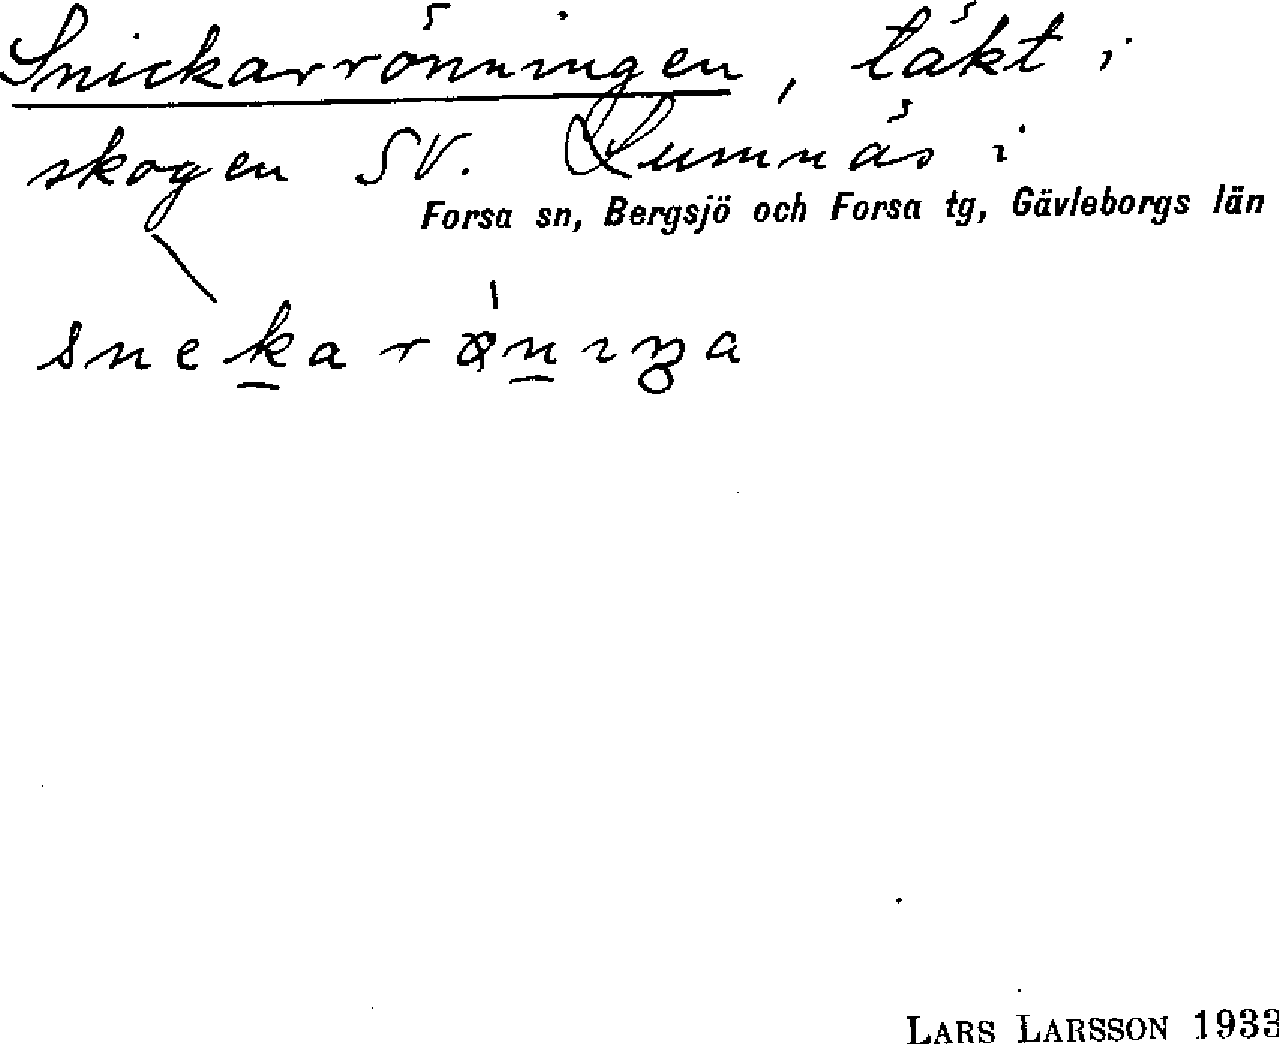 Snickarrönningen, täkt i
skogen SV. Lumnäs i
Forsa sn, Bergsjö och Forsa tg, Gävleborgs län
LARS LARSSON 1933